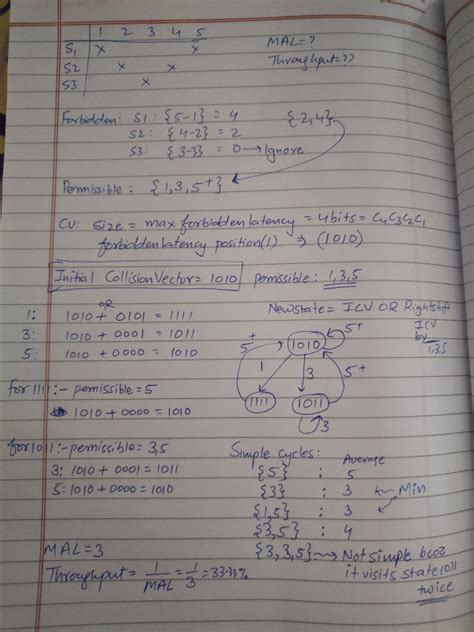 1 2 3 4 5
S1 x x MAL=?
S2 x x Throughput=??
S3 x
Forbidden: S1: {5-1} = 4 {2,4}
S2: {4-2} = 2
S3: {3-3} = 0 → Ignore
Permissible: {1,3,5+}
CV: Size = max forbidden latency = 4 bits = C4C3C2C1
forbidden latency position(1) ⇒ (1010)
Initial Collision Vector = 1010 permissible: 1,3,5
OR
1: 1010 + 0101 = 1111
3: 1010 + 0001 = 1011
5: 1010 + 0000 = 1010
New state = ICV OR Rightshift
ICV
by
1,3,5
1010 5+
5+ 1 3 5+
1111 1011
3
for 1111:- pemissible = 5
1010 + 0000 = 1010
for 1011:- pemissible = 3,5
3: 1010 + 0001 = 1011
5: 1010 + 0000 = 1010
Simple cycles: Average
{5} : 5
{3} : 3 ← Min
{1,5} : 3
{3,5} : 4
{3,3,5} → Not simple bcoz
it visits state 1011
twice
MAL = 3
Throughput = 1/MAL = 1/3 = 33.33%